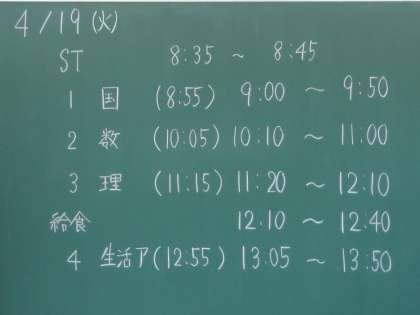 4/19(火)
ST 8:35 ~ 8:45
1 国 (8:55) 9:00 ~ 9:50
2 数 (10:05) 10:10 ~ 11:00
3 理 (11:15) 11:20 ~ 12:10
給食 12.10 ~ 12:40
4 生活ア (12:55) 13:05 ~ 13:50